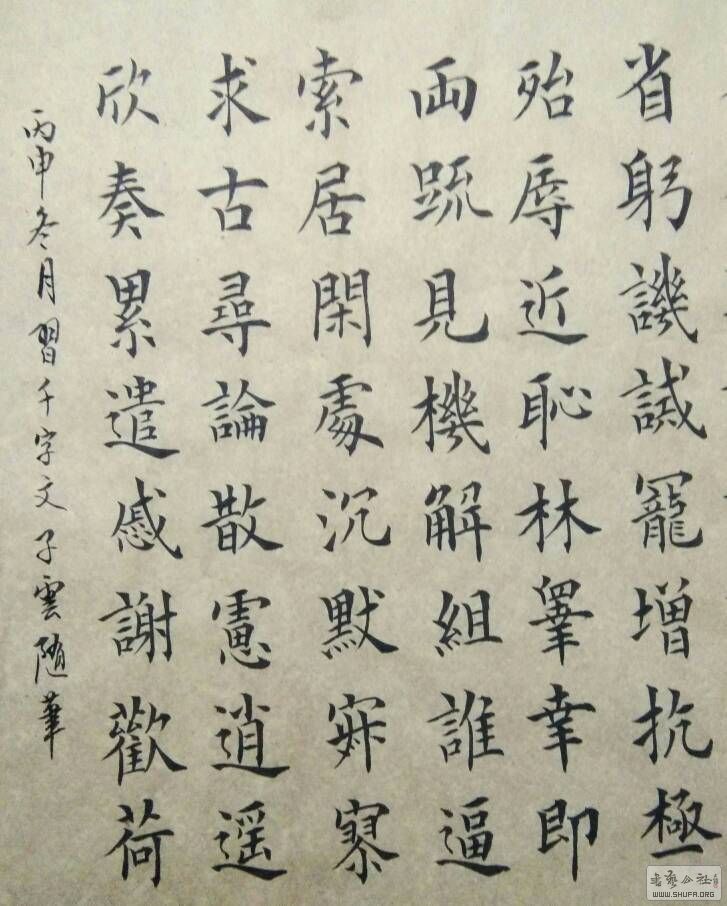 省躬譏誡寵增抗極
殆辱近恥林睪幸即
兩疏見機解組誰逼
索居閑處沉默寂寥
求古尋論散慮逍遥
欣奏累遣慼謝歡荷
丙申冬月習千字文子雲随筆
书艺公社
WWW.SHUFA.ORG